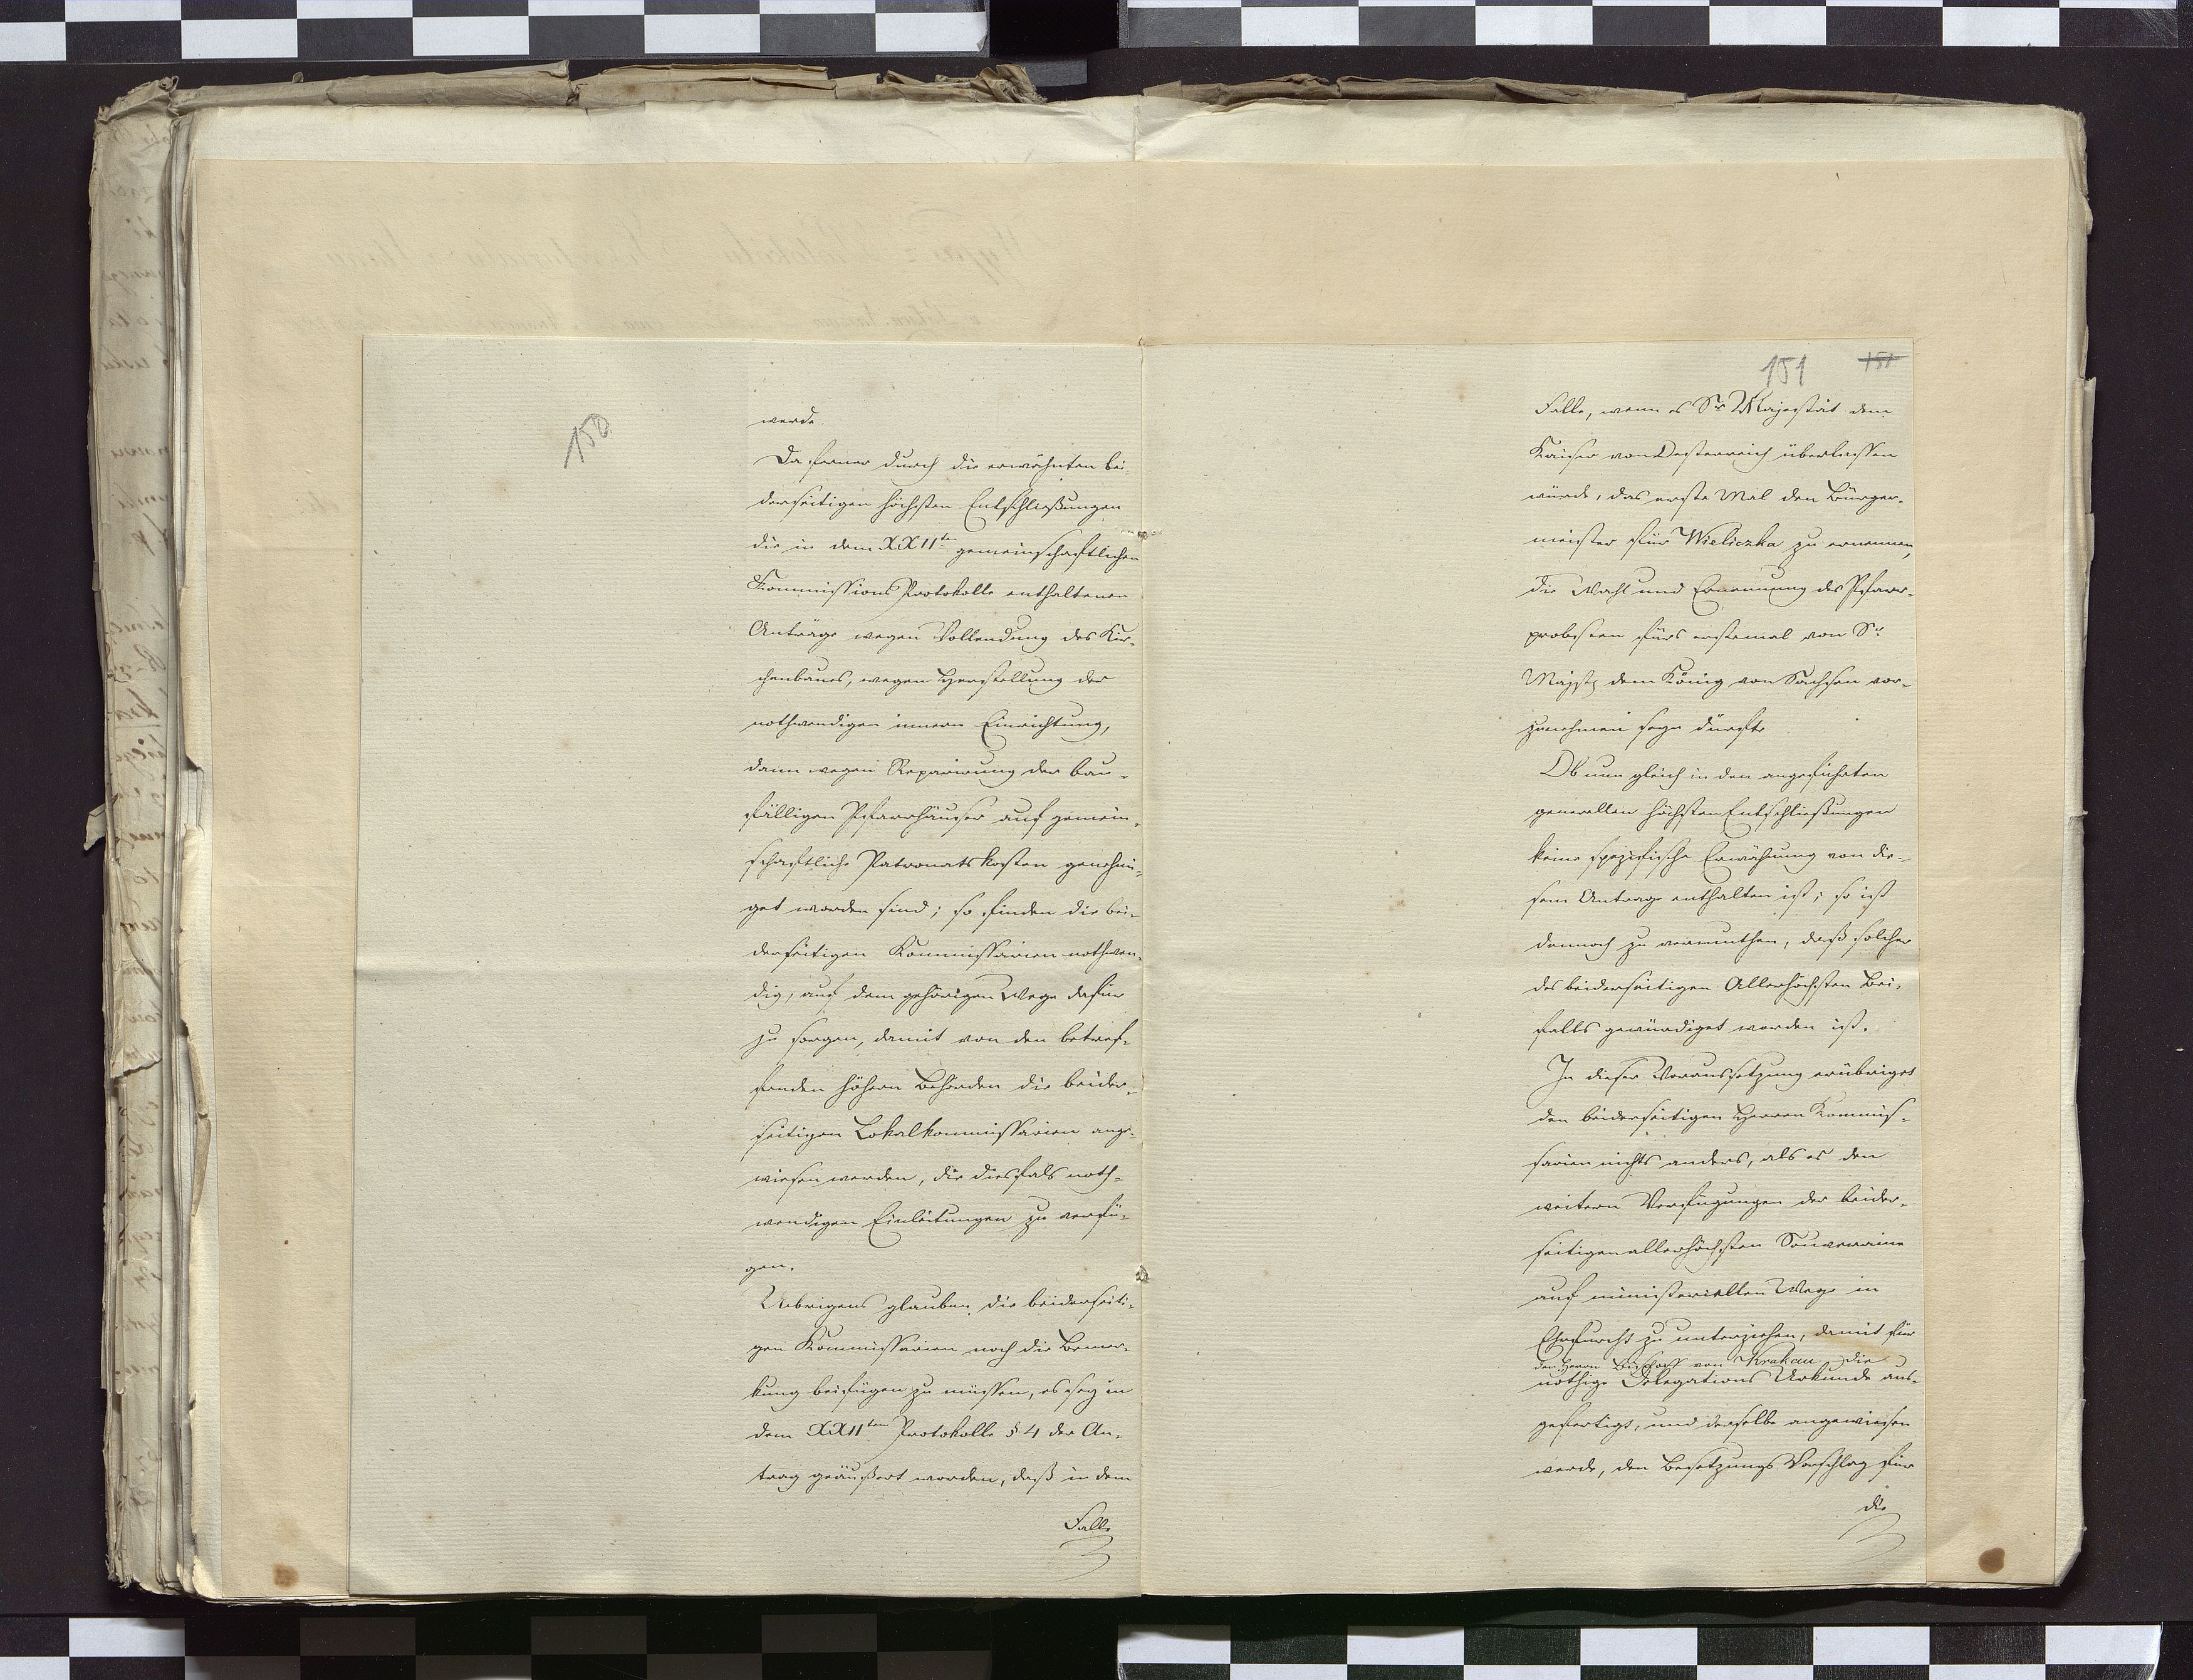 150
werde.
Da ferner durch die erwähnten bei-
derseitigen höchsten Entschließungen
die in dem XXII ten gemeinschaftlichen
Kommissions Protokolle enthaltenen
Anträge wegen Vollendung des Kir-
chenbaues, wegen Herstellung der
nothwendigen innern Einrichtung,
dann wegen Reparirung der bau-
fälligen Pfarrhäuser auf gemein-
schaftliche Patronatskosten genehmi-
get worden sind; so finden die bei-
derseitigen Kommissarien nothwen-
dig, auf dem gehörigen Wege dafür
zu sorgen, damit von den betref-
fenden höhern Behörden die beider-
seitigen Lokalkommissarien ange-
wiesen werden, die diesfals noth-
wendigen Einleitungen zu verfü-
gen.
Uebrigens glauben die beiderseiti-
gen Kommissarien noch die Bemer-
kung beifügen zu müssen, es sey in
dem XXII ten Protokolle § 4 der An-
trag geäußert worden, daß in dem
Falle
151 151
Falle, wenn es Sr Majestät dem
Kaiser von Oesterreich überlassen
würde, das erste Mal den Bürger-
meister für Wieliczka zu ernennen,
die Wahl und Ernennung des Pfarr-
probsten fürs erstemal von Sr
Majst dem König von Sachsen vor-
zunehmen seyn dürfte.
Ob nun gleich in den angeführten
generellen höchsten Entschließungen
keine spezifische Erwähnung von die-
sem Antrage enthalten ist; so ist
dennoch zu vermuthen, daß solcher
des beiderseitigen Allerhöchsten Bei-
falls gewürdiget worden ist.
In dieser Voraussetzung erübriget
den beiderseitigen Herren Kommis-
sarien nichts anders, als es den
weitern Verfügungen der beider-
seitigen allerhöchsten Souveraine
auf ministeriellen Wege in
Ehrfurcht zu unterziehen, damit für
den Herrn Bischoff von Krakau die
nöthige Delegations Urkunde aus-
gefertigt, und derselbe angewiesen
werde, den Besetzungs Vorschlag für
die